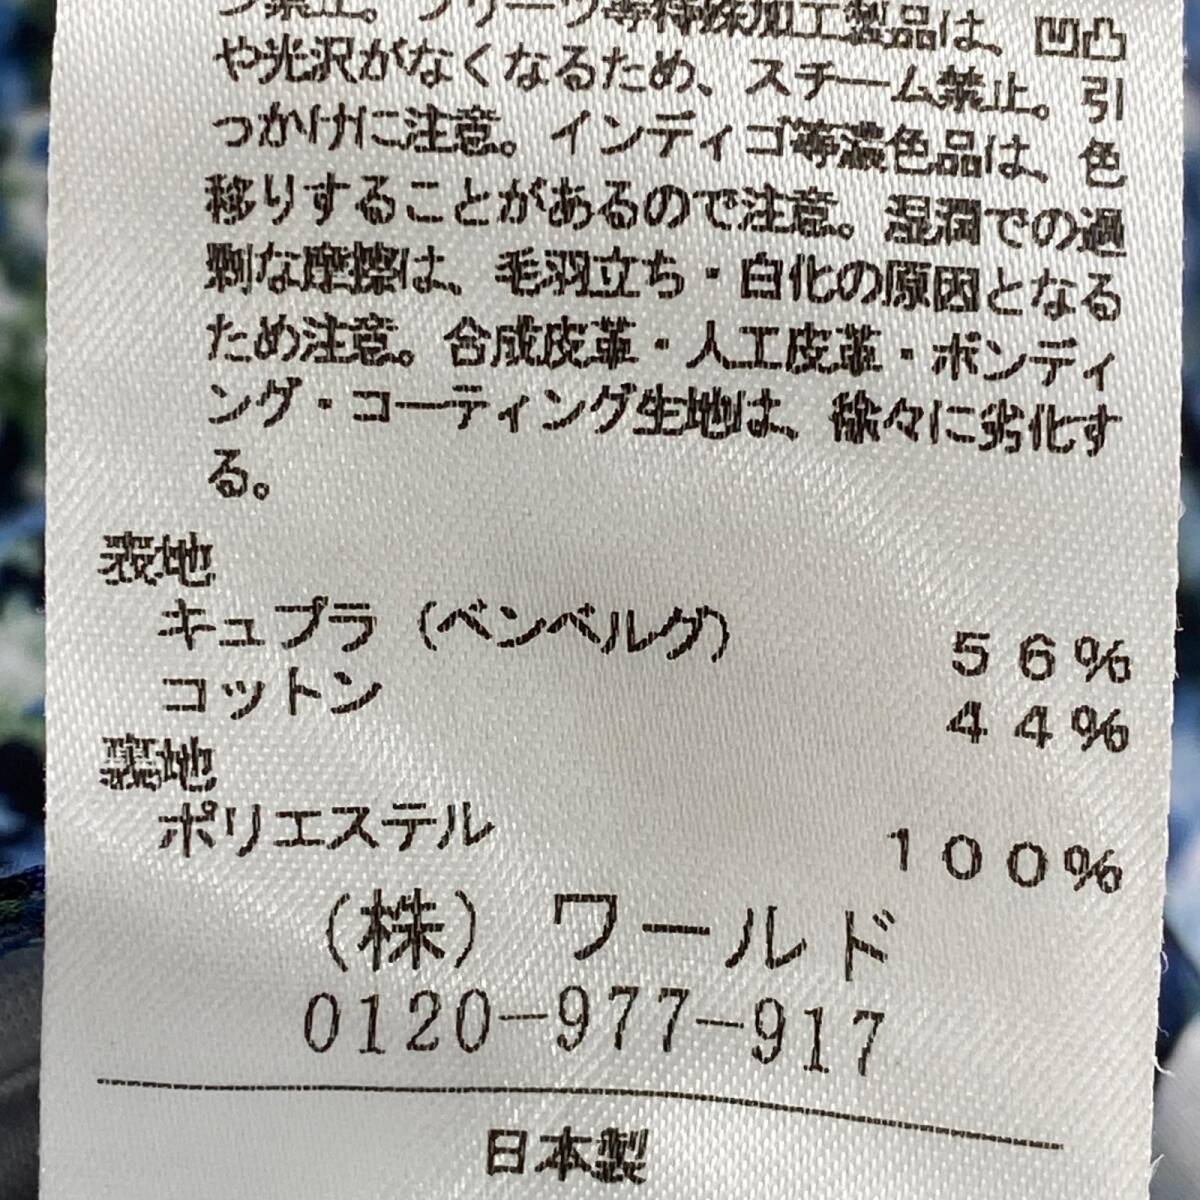 禁止。プリーツ等特殊加工製品は、凹凸
や光沢がなくなるため、スチーム禁止。引
っかけに注意。インディゴ等濃色品は、色
移りすることがあるので注意。湿潤での過
剰な摩擦は、毛羽立ち・白化の原因となる
ため注意。合成皮革・人工皮革・ボンディ
ング・コーティング生地は、徐々に劣化す
る。
表地
キュプラ（ベンベルグ） ５６％
コットン ４４％
裏地
ポリエステル １００％
（株）ワールド
0120-977-917
日本製